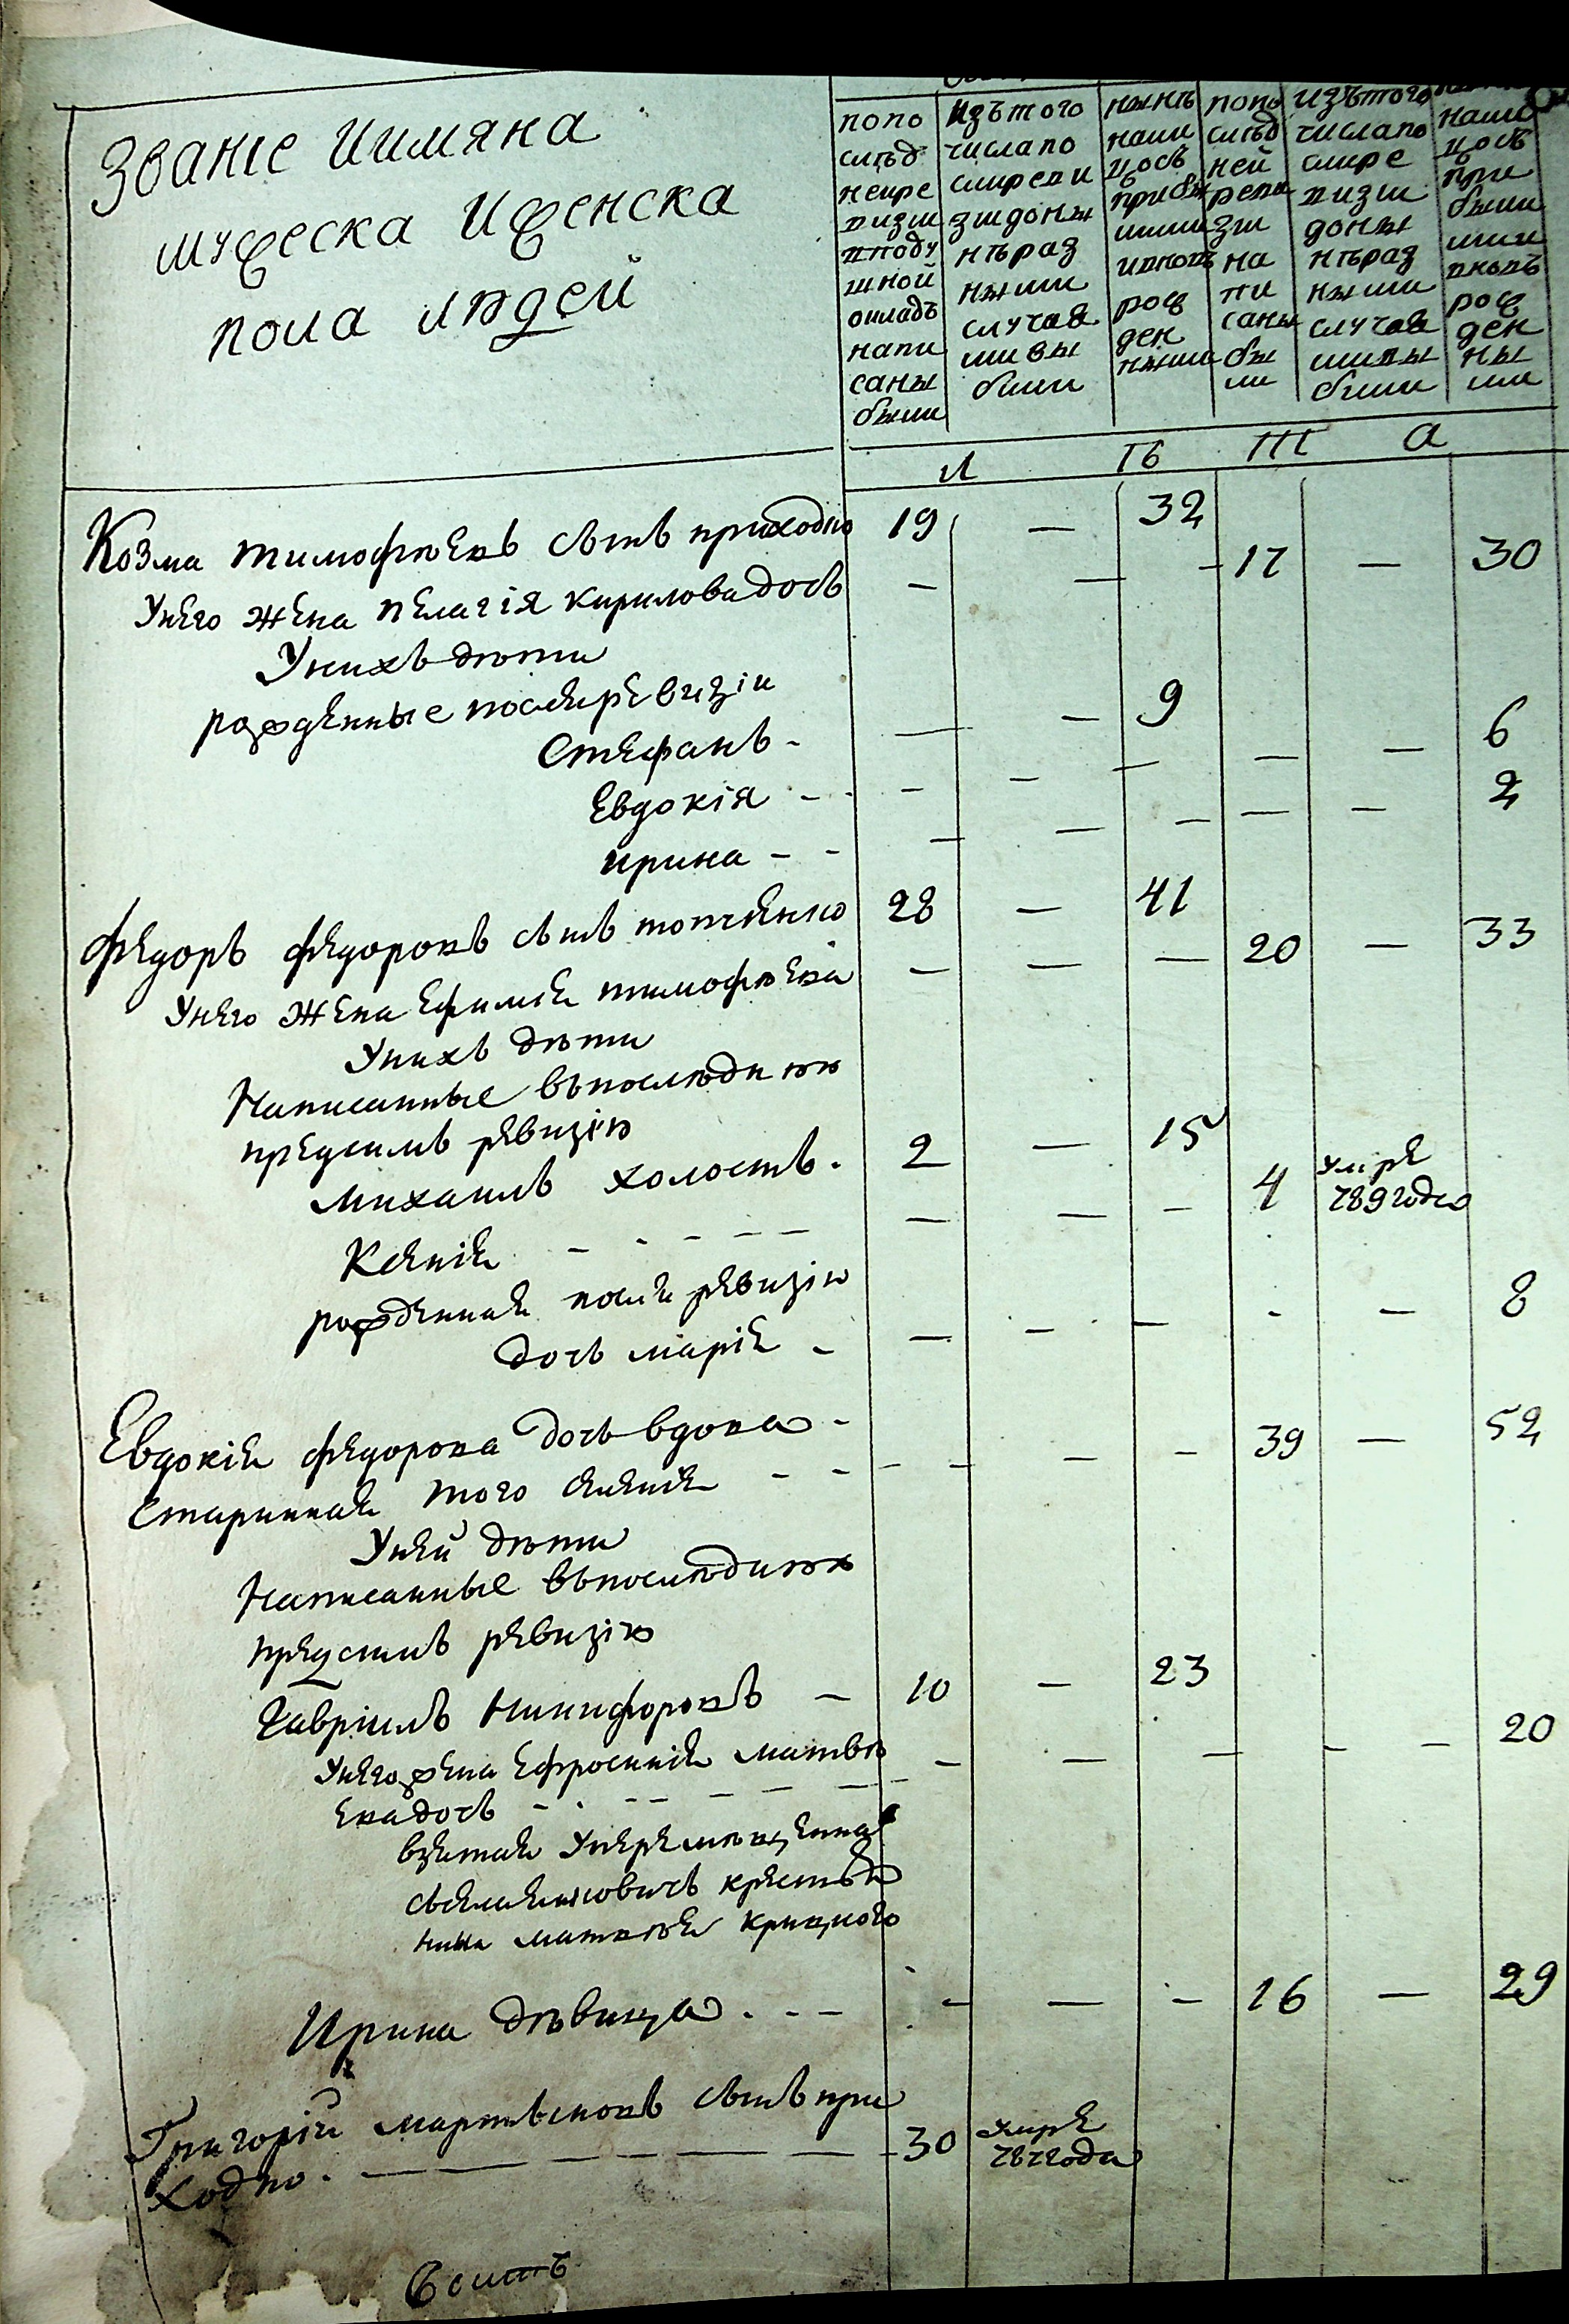 Званіе иимяна
мужеска иженска
пола людей
попо
слѣд
неире
визiи
вподу
шной
окладъ
напи
саны
были
изътого
числапо
слиреви
зиидоны
нѣраз
ными
случая
мивы
были
нынѣ
нали
цосъ
прибы
лыми
ивновь
рож
ден
ными
попо
слѣд
ней
реви
зіи
на
пи
саны
бы
ли
изътого
числапо
слире
визіи
доны
нѣраз
ными
случая
мивы
были
нали
цосъ
при
былы
ми
вновъ
рож
ден
ны
ми
Л Ѣ Т А
Козма тимофѣевъ сынъ приходко 19 — 32
Унего жена пелагія кириловадочь — — - 17 — 30
Унихъ дѣти
рожденные послеревизіи
Стефанъ - — — 9
Евдокія - - — — — — — 6
ирина - - — — — — — 2
Федоръ федоровъ сынъ 28 — 41
Унего жена Ефимія тимофѣева — — — 20 — 33
Унихъ дѣти
Написанные впоследнюю
предсимъ ревизію
михаилъ холостъ. 2 — 15
Ксенія - - - - - — — - 4 умре 789года
рожденная после ревизіи
дочь марія - — — — - — 8
Евдокія федорова дочь вдова -
Старинная того селенія - - - - — - 39 — 52
Уней дѣти
Написанные впоследнюю
предсимъ ревизію
Гавріилъ Никифоровъ — 10 — 23
Унегожена Ефросинія матвѣ
евадочь - - - - - — — — — - - 20
взятая
крестья
нина матвѣя
Ирина дѣвица . - - - — - 16 — 29
Григорій мартыновъ сынъ при
ходко . — — — — 30 умре 787года